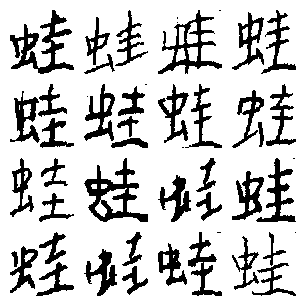 蛙蛙蛙蛙
蛙蛙蛙蛙
蛙蛙蛙蛙
蛙蛙蛙蛙